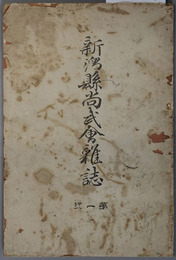 新潟縣尚武會雑誌
第一號